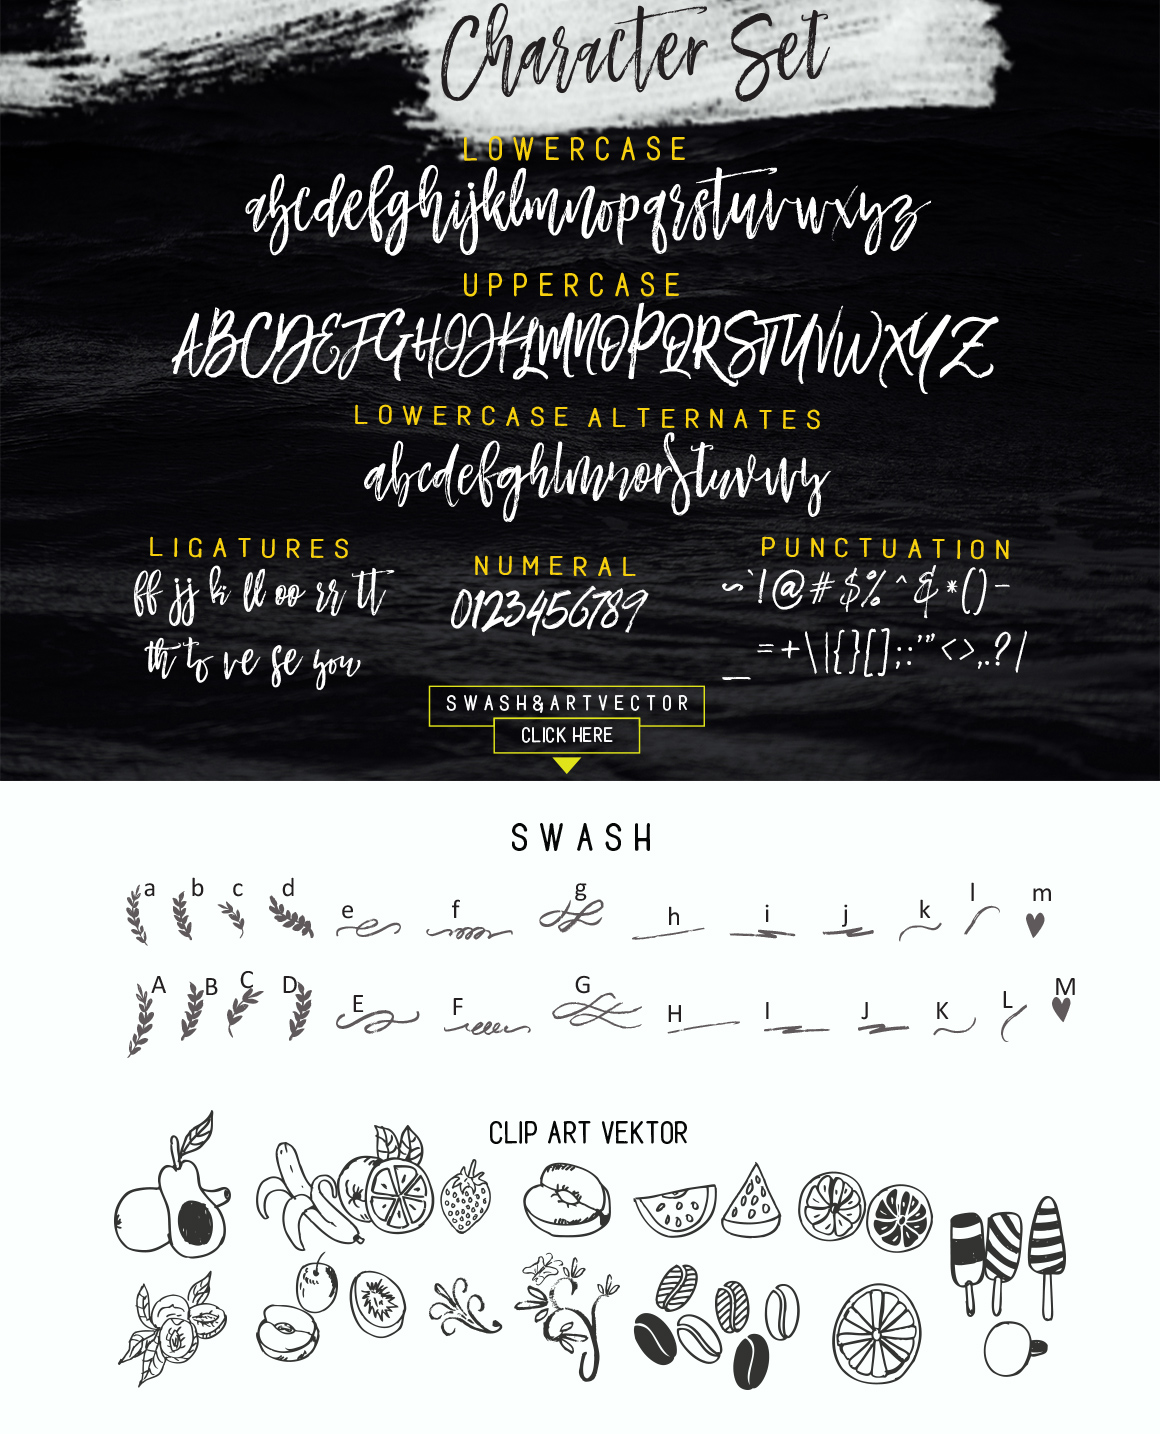 Character Set
LOWERCASE
abcdefghijklmnopqrstuvwxyz
UPPERCASE
ABCDEFGHIJKLMNOPQRSTUVWXYZ
LOWERCASE ALTERNATES
abcdefghlmnorstuvwy
LIGATURES
ff jj k ll oo rr tt
th to ve se you
NUMERAL
0123456789
PUNCTUATION
~`!@#$%^&*()-
_=+\|{}[];:'"<>,.?/
SWASH&ARTVECTOR
CLICK HERE
SWASH
a b c d e f g h i j k l m
A B C D E F G H I J K L M
CLIP ART VEKTOR